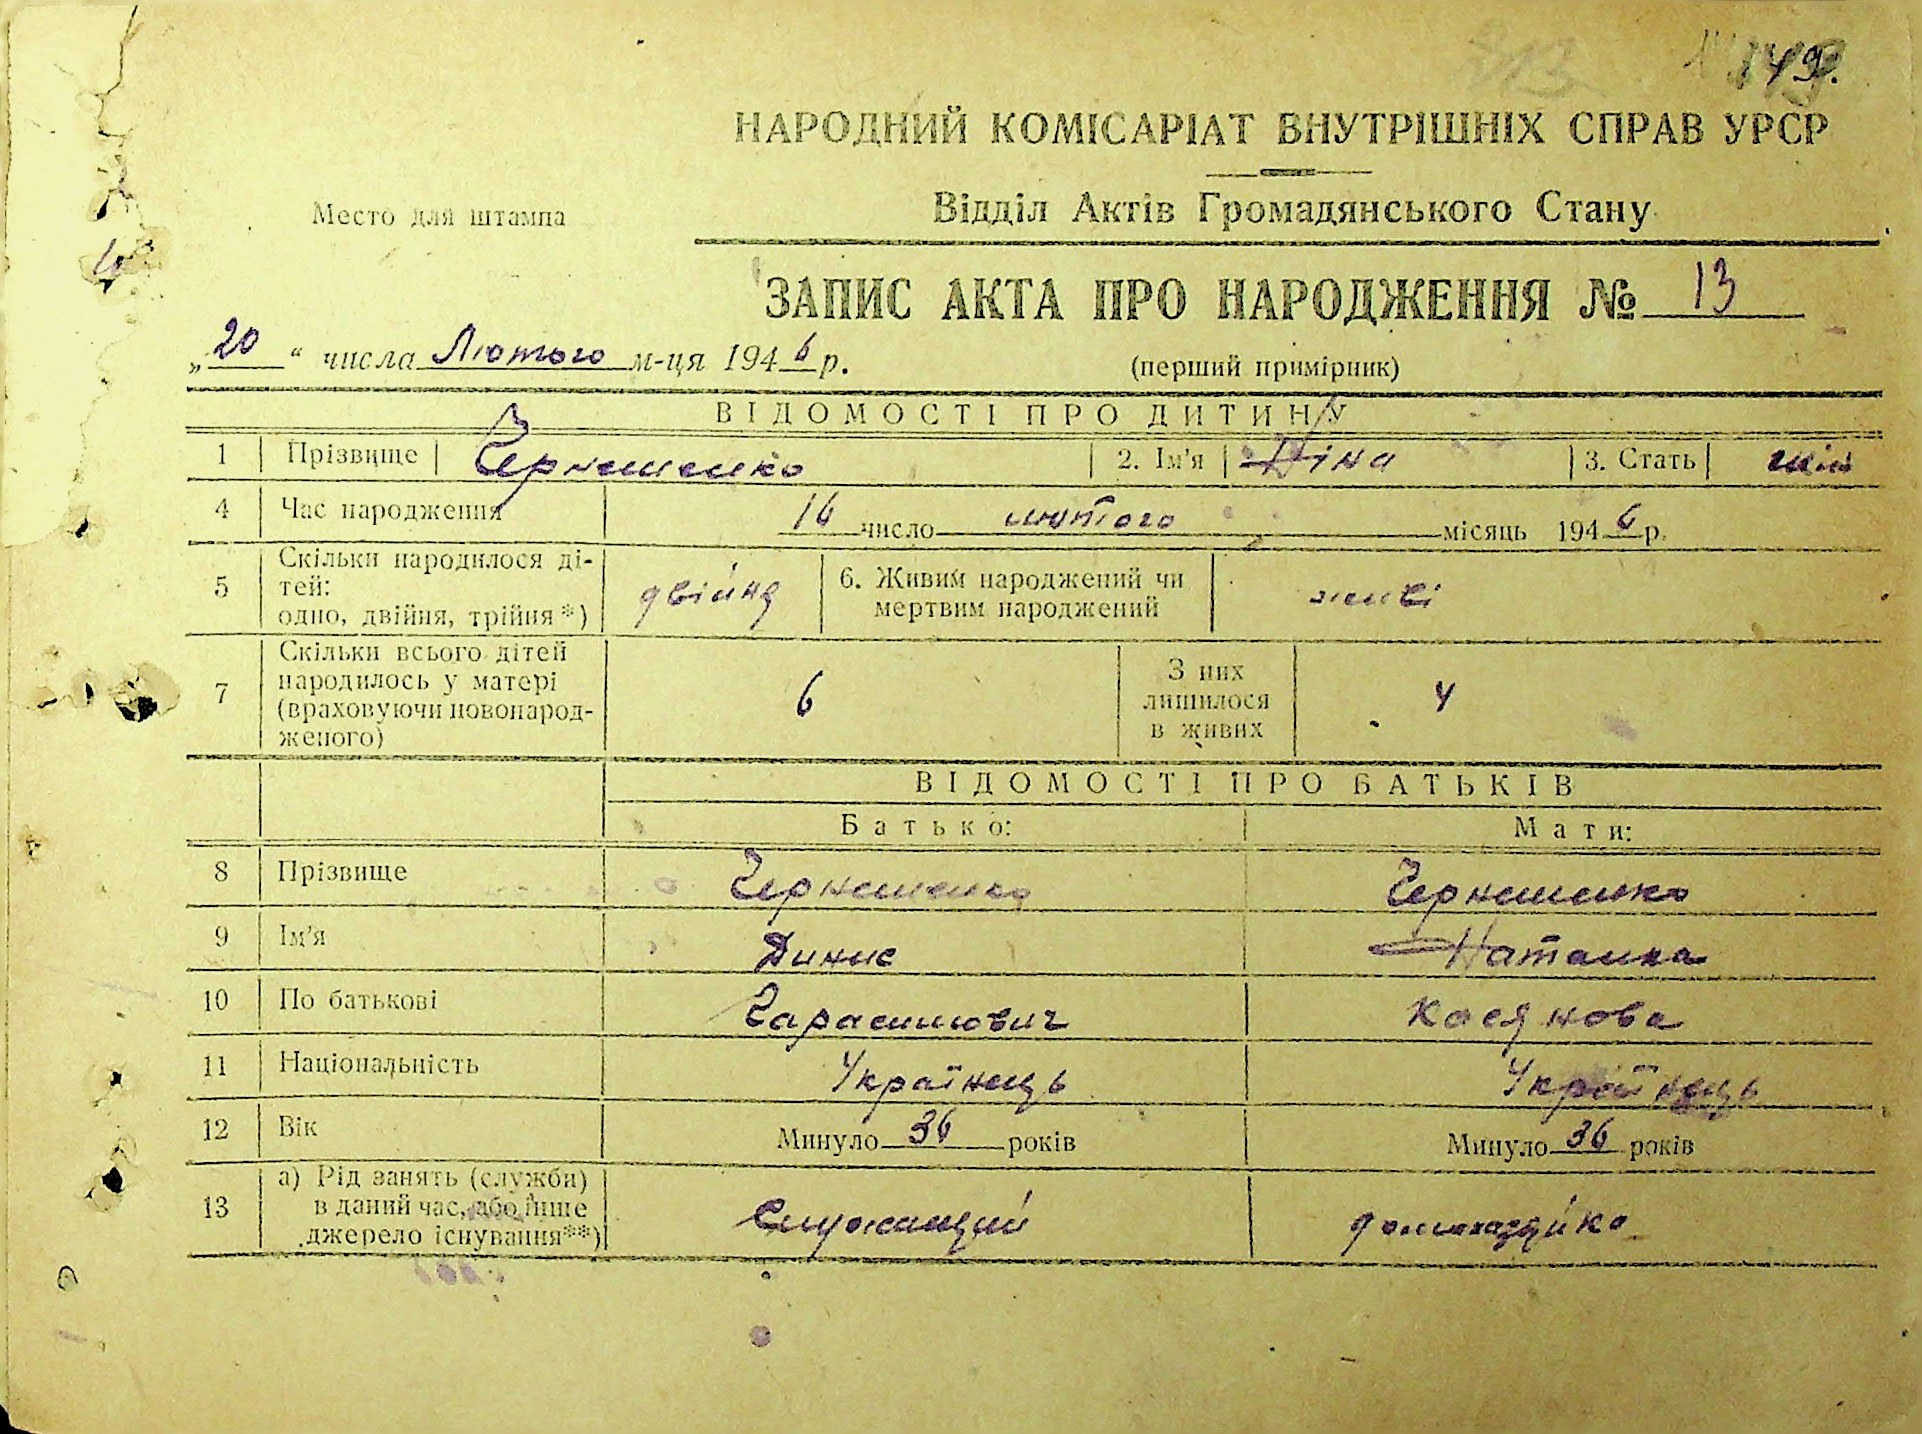 149.
НАРОДНИЙ КОМІСАРІАТ ВНУТРІШНІХ СПРАВ УРСР
Место для штампа
Відділ Актів Громадянського Стану
ЗАПИС АКТА ПРО НАРОДЖЕННЯ № 13
„20“ числа Лютого м-ця 1946 р.
(перший примірник)
ВІДОМОСТІ ПРО ДИТИНУ
1 Прізвище Чернешенко 2. Ім'я Діна 3. Стать жін
4 Час народження 16 число лютого місяць 1946 р.
5 Скільки народилося ді-
тей:
одно, двійня, трійня*) двійня
6. Живим народжений чи
мертвим народжений живі
7 Скільки всього дітей
народилось у матері
(враховуючи новонарод-
женого) 6
З них
лишилося
в живих 4
ВІДОМОСТІ ПРО БАТЬКІВ
Батько: Мати:
8 Прізвище Чернешенко Чернешенко
9 Ім'я Динис Наталка
10 По батькові Гарасимович Касянова
11 Національність Українець Українець
12 Вік Минуло 36 років Минуло 36 років
13 а) Рід занять (служби)
в даний час, або інше
джерело існування**) Служащий домохазяйка